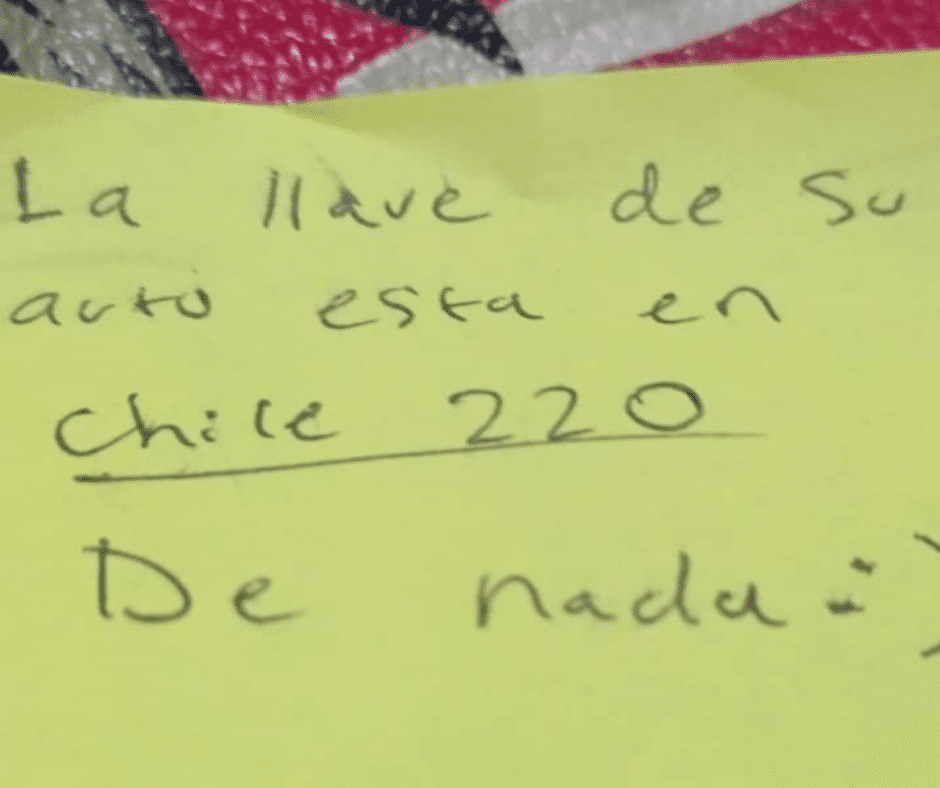 La llave de su
auto esta en
chile 220
De nada :)